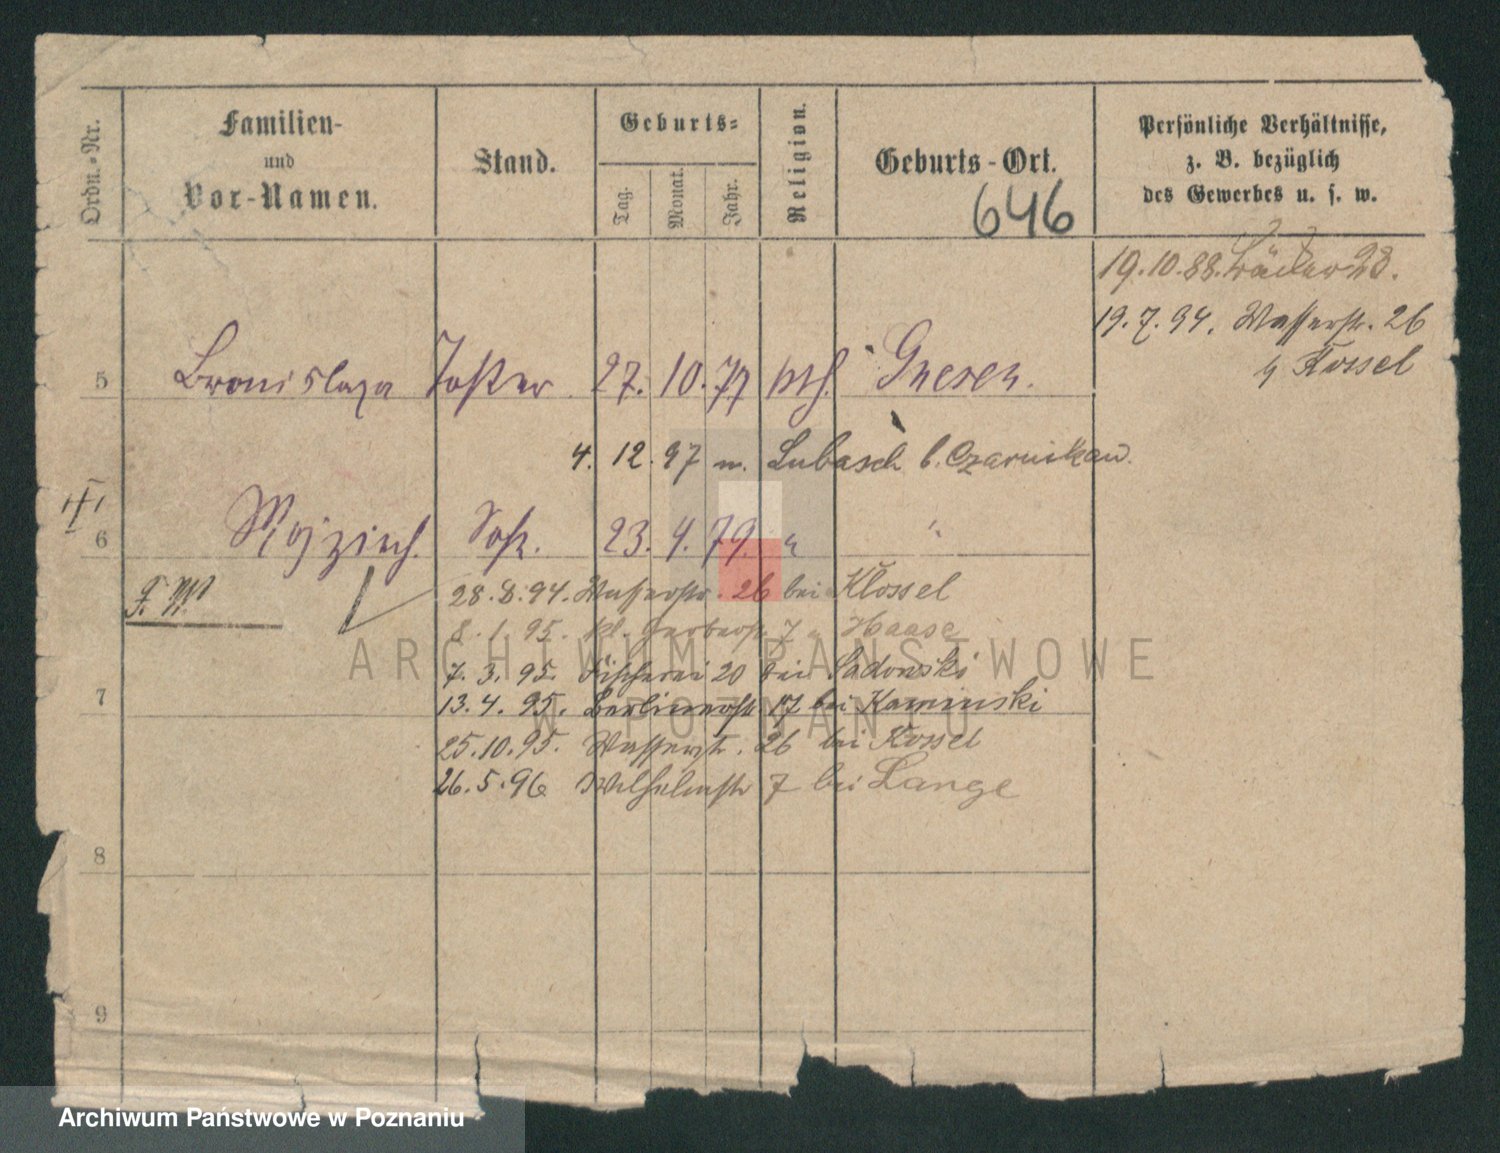 Ordn.-Nr.
Familien-
und
Vor-Namen.
Stand.
Geburts-
Tag.
Monat.
Jahr.
Religion.
Geburts-Ort.
646
Persönliche Verhältnisse,
z. B. bezüglich
des Gewerbes u. s. w.
19.10.88. 23.
19.7.94. Wasserstr. 26
Kossel
5 Bronislaza Tochter 27. 10. 77 kth. Gnesen.
4. 12. 97 n. Lubasch b. Czarnikau.
6 Wojziech. Sohn. 23. 4. 79. " "
F. W.
28.8.94. Wasserstr. 26 bei Klossel
8.1.95. kl. Gerberstr. 7 " Haase
7.3.95. Fischerei 20 bei Sadowski
7
13.4.95. Berlinerstr. 17 bei Kaminski
25.10.95. Wasserstr. 26 bei Kossel
26.5.96 Wilhelmstr 7 bei Lange
8
9
ARCHIWUM PAŃSTWOWE
W POZNANIU
Archiwum Państwowe w Poznaniu